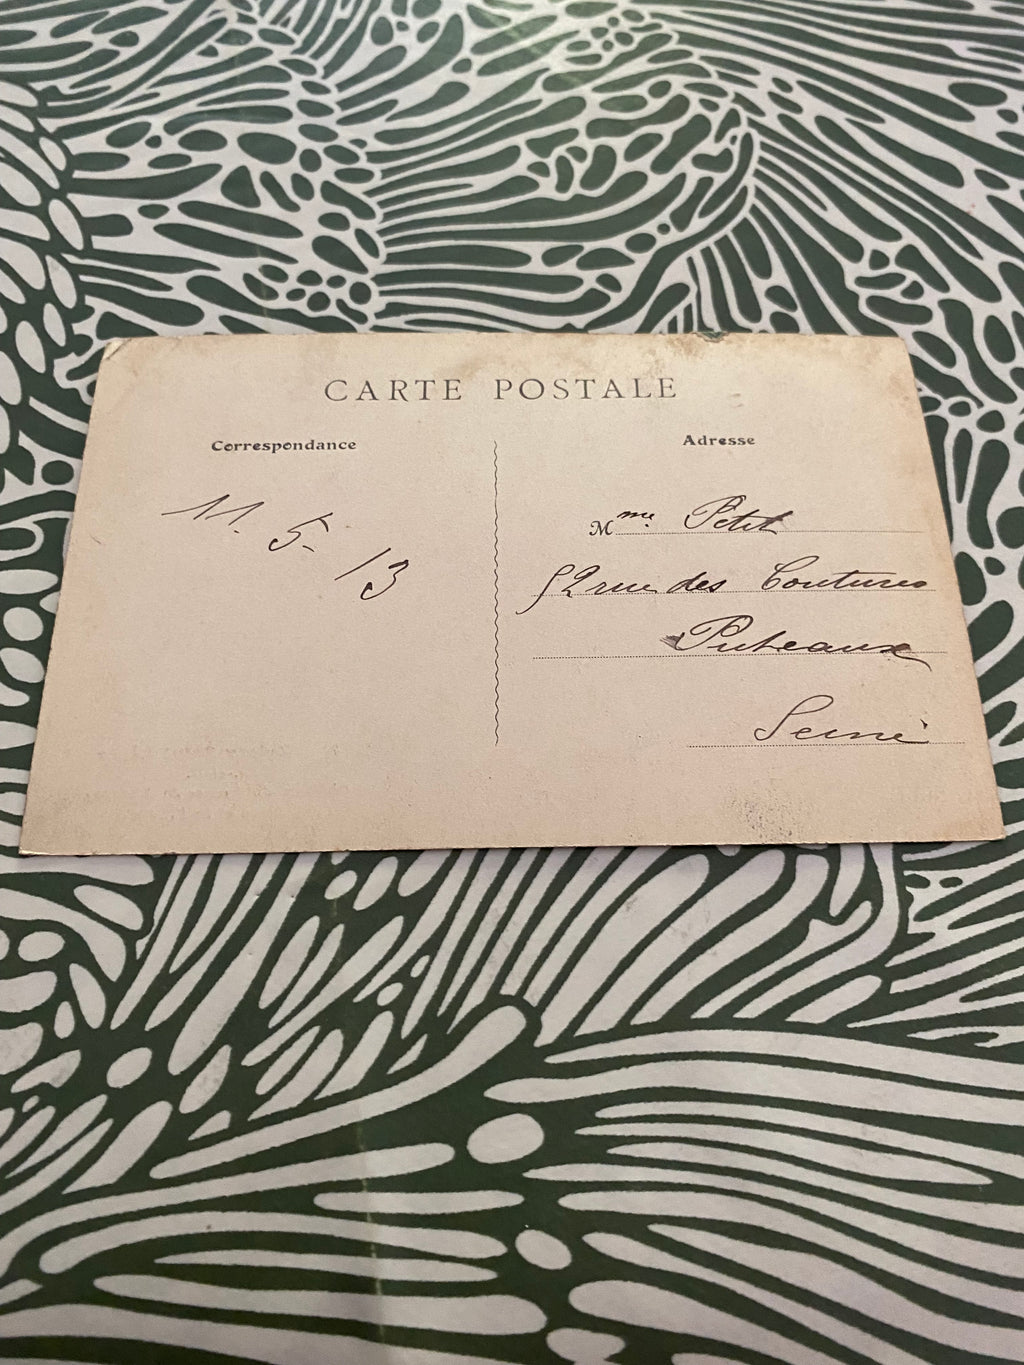 CARTE POSTALE
Correspondance
11. 5. 13
Adresse
Mme Petit
52 rue des Coutures
Puteaux
Seine